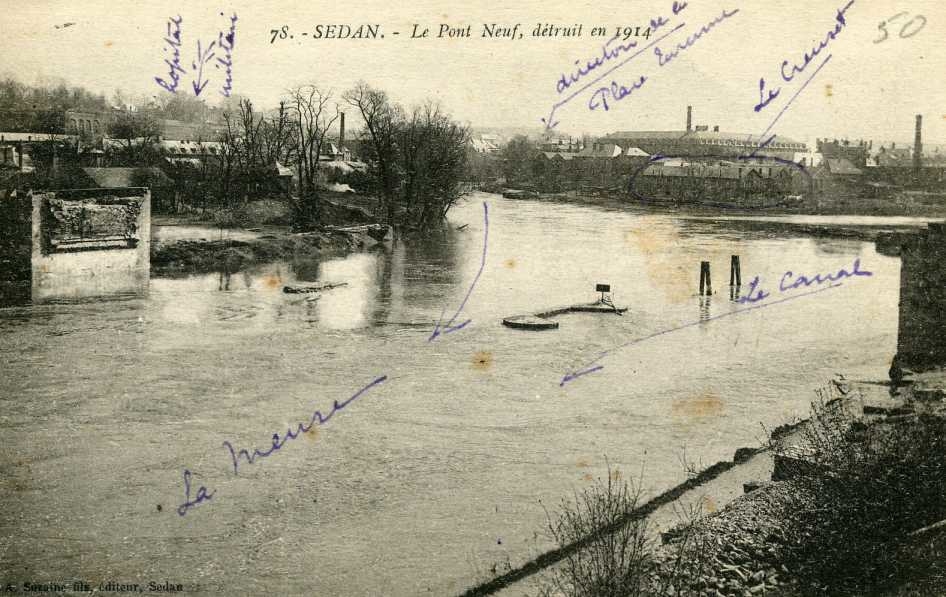 78. - SEDAN. - Le Pont Neuf, détruit en 1914
50
hôpital
militair
direction de la
Place Turenne
Le Creuset
Le Canal
La Meuse
A. Suzaine fils, éditeur, Sedan